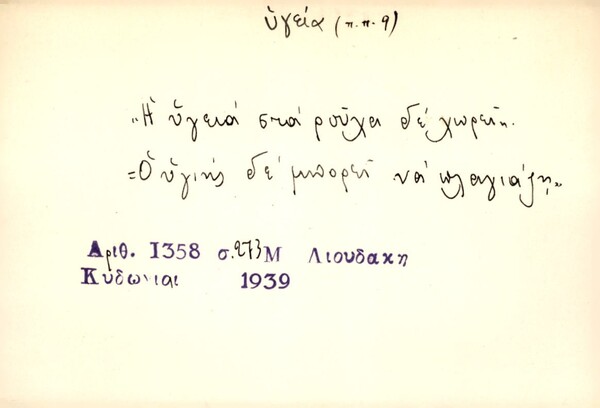 ὑγεία (π.π. 9)
„Ἡ ὑγειά στά ροῦχα δέ χωρεῖ".
= Ὁ ὑγιής δέ μπορεῖ νά πλαγιάζῃ "
Αριθ. 1358 σ. 273 Μ Λιουδακη
Κυδωνιαι 1939